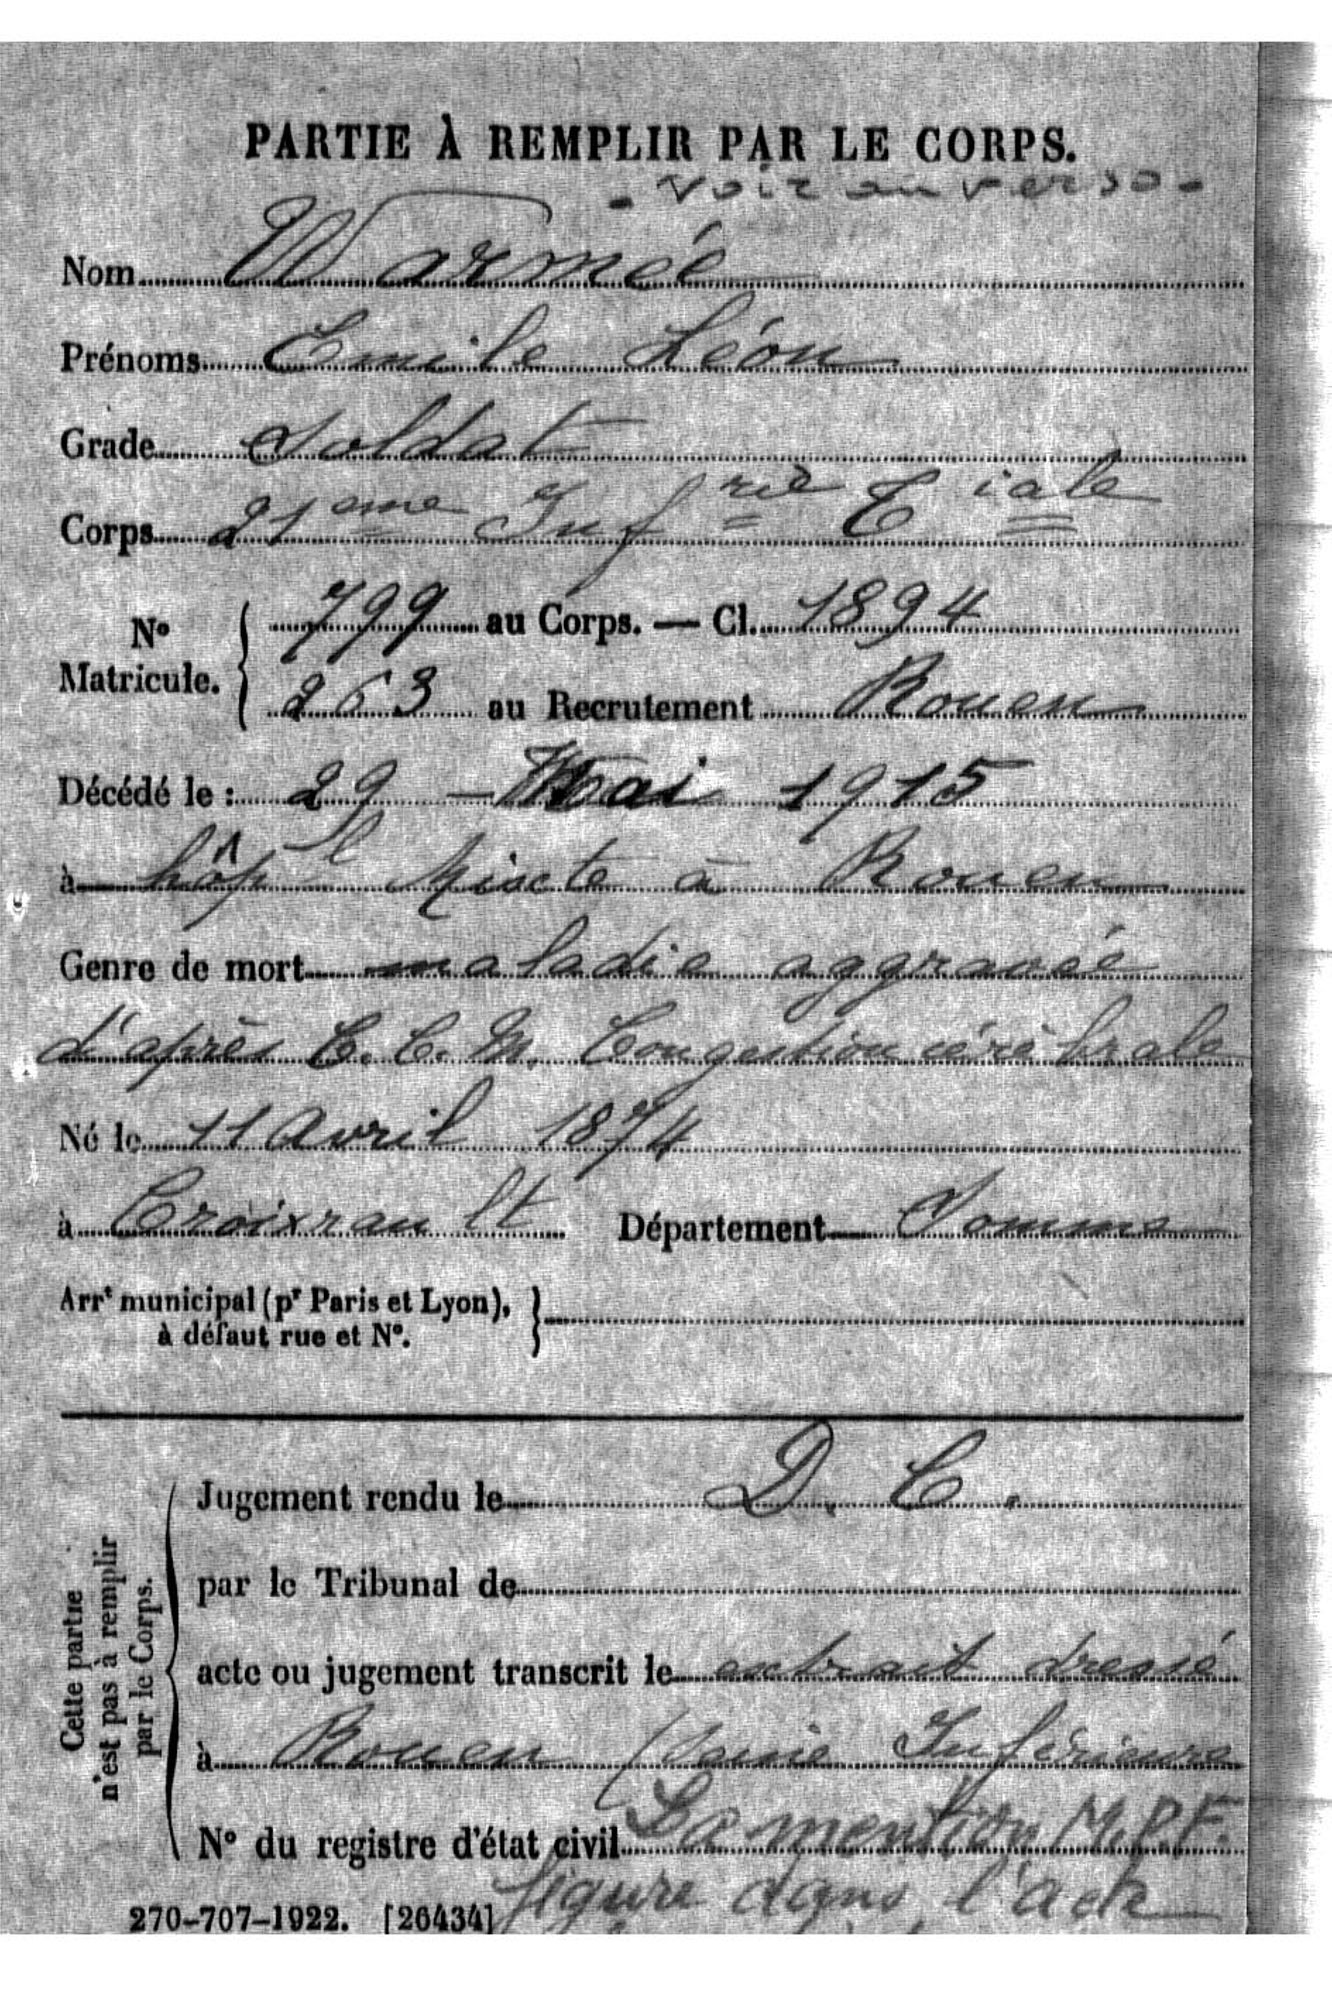 PARTIE À REMPLIR PAR LE CORPS.
- voir au verso -
Nom Warmée
Prénoms Emile Léon
Grade Soldat
Corps 21eme Infrie Tiale
No Matricule. { 799 au Corps. — Cl. 1894
263 au Recrutement Rouen
Décédé le : 29 - Mai 1915
à hôpl Mixte à Rouen
Genre de mort maladie aggravée
d'après C. C. M. Congestion cérébrale
Né le 11 Avril 1874
à Croixrault Département Somme
Arrt municipal (pr Paris et Lyon),
à défaut rue et No. }
Cette partie
n'est pas à remplir
par le Corps.
Jugement rendu le D. C.
par le Tribunal de
acte ou jugement transcrit le extrait dressé
à Rouen (Seine Inférieure
No du registre d'état civil La mention M.P.F.
figure dans l'acte
270-707-1922. [26434]